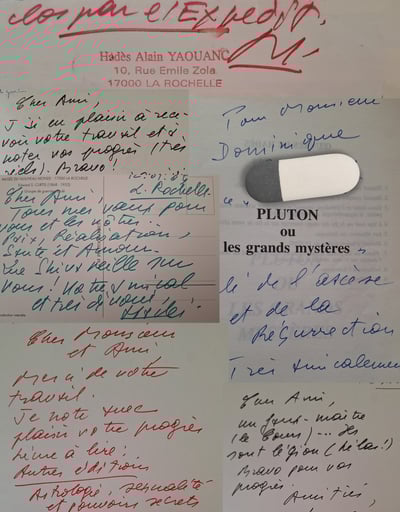 Hadès Alain YAOUANC
10, Rue Emile Zola
17000 LA ROCHELLE
Cher Ami,
J'ai eu plaisir à rece-
voir votre travail et à
noter vos progrès (très
réels). Bravo !
La Rochelle
Cher Ami
Tous mes vœux pour
vous et les nôtres.
Paix, Réalisation,
Santé et Amour.
Que Shiva veille sur
vous ! Votre amical
et très dévoué,
Pour Monsieur
Dominique
ce
PLUTON
ou
les grands mystères
de l'ascèse
et de la
Résurrection
Très amicalement
Cher Monsieur
et Ami,
Merci de votre
travail.
Je note avec
plaisir votre progrès
Livre à lire :
Autres éditions
Astrologie, sexualité
et pouvoirs secrets
Cher Ami,
un faux-maître
(de Cours)... Ils
sont légion (hélas !)
Bravo pour vos
progrès.
Amitiés,